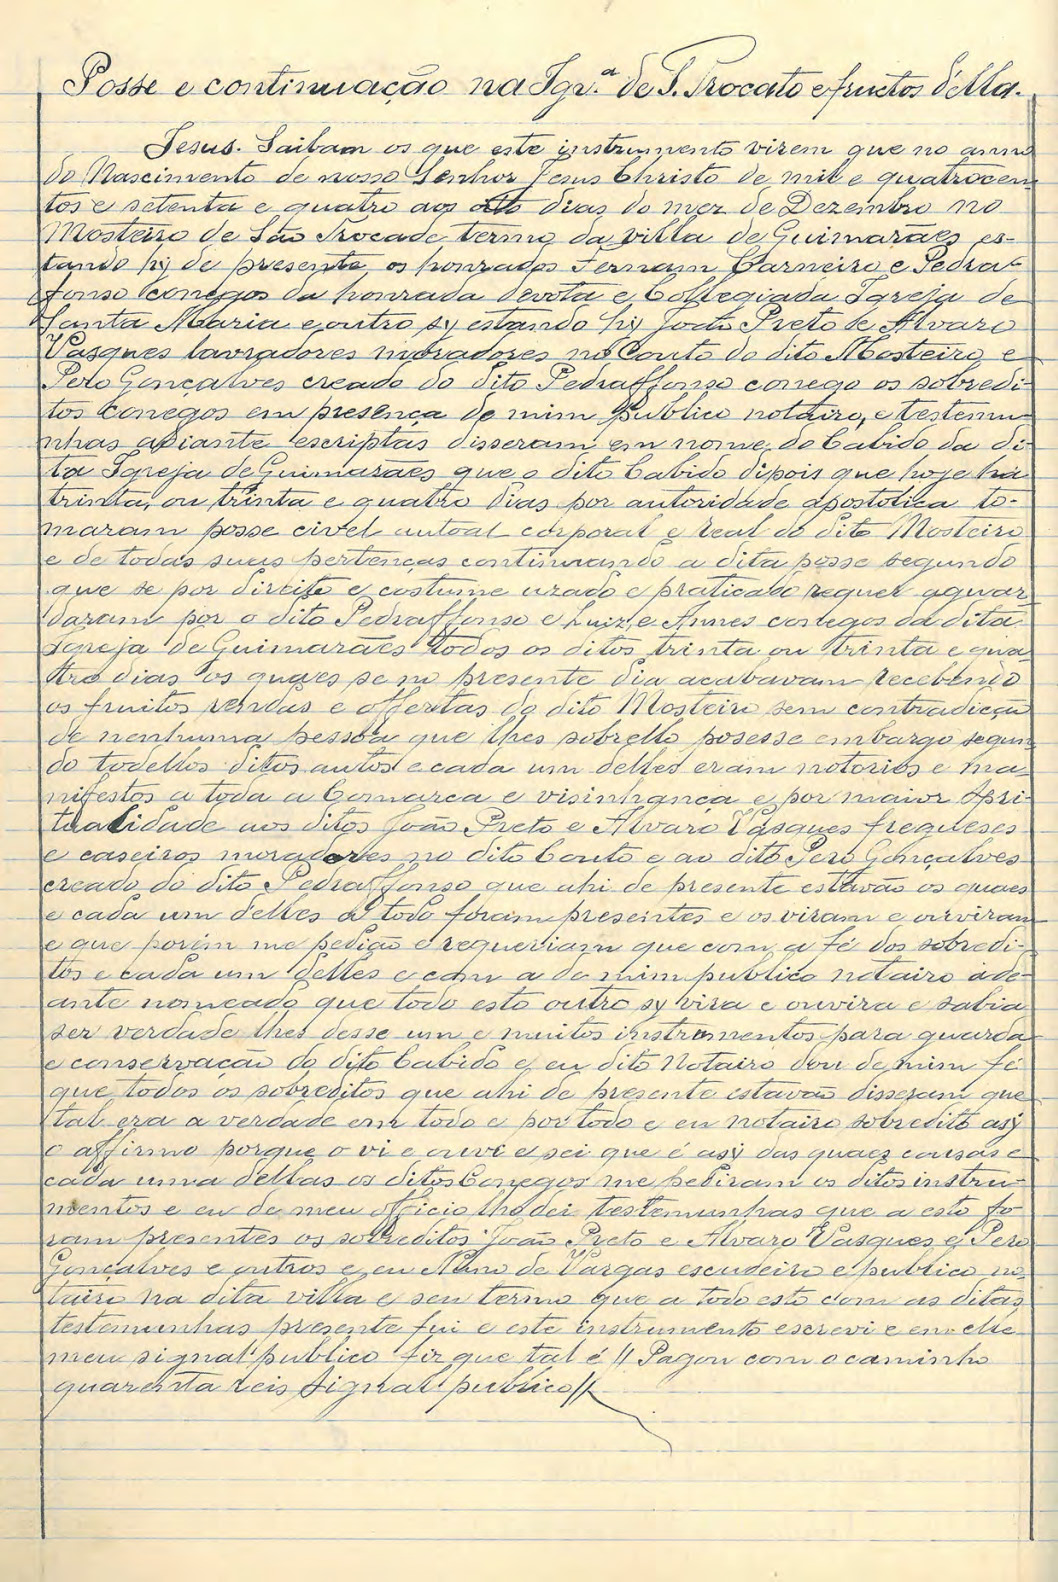 Posse e continuação na Igr.ª de S. Trocato e fructos d'élla.
Jesus. Saibam os que este instrumento virem que no anno
do Nascimento de nosso Senhor Jesus Christo de mil e quatrocen
tos e setenta e quatro aos oito dias do mez de Dezembro no
Mosteiro de São Trocade termo da villa de Guimarães es-
tando hy de presente os honrados Fernam Carneiro e Pedra
ffonso conegos da honrada devota e Collegiada Igreja de
Santa Maria e outro sy estando hy João Preto e Alvaro
Vasques lavradores moradores no Couto do dito Mosteiro e
Pero Gonçalves creado do dito Pedraffonso conego os sobredi-
tos conegos em presença de mim publico notairo, e testemu-
nhas adiante escriptas disseram em nome do Cabido da di-
ta Igreja de Guimarães que o dito Cabido dipois que hoje ha
trinta, ou trinta e quatro dias por autoridade apostolica to-
maram posse civel autoal corporal e real do dito Mosteiro
e de todas suas pertenças continuando a dita posse segundo
que se por direito e costume uzado e praticado requer aguar
daram por o dito Pedraffonso e Luiz e Annes conegos da dita
Igreja de Guimarães todos os ditos trinta ou trinta e qua
tro dias os quaes se no presente dia acabavam recebendo
os fruitos rendas e offertas do dito Mosteiro sem contradicção
de nenhuma pessoa que lhes sobrello posesse embargo segun
do todellos ditos autos e cada um delles eram notorios e ma
nifestos a toda a Comarca e visinhança e por maior spri-
tualidade aos ditos João Preto e Alvaro Vasques fregueses
e caseiros moradores no dito Couto e ao dito Pero Gonçalves
creado do dito Pedraffonso que ahi de presente estavão os quaes
e cada um delles a todo foram presentes e os viram e ouviram
e que porém me pedião e requeriam que com a fé dos sobredi-
tos e cada um delles e com a de mim publico notairo ade-
ante nomeado que todo esto outro sy vira e ouvira e sabia
ser verdade lhes desse um e muitos instrumentos para guarda
e conservação do dito Cabido e eu dito Notairo dou de mim fé
que todos os sobreditos que ahi de presente estavão disseram que
tal era a verdade em todo e por todo e eu notairo sobredito asy
o affirmo porque o vi e ouvi e sei que é asy das quaez cousas e
cada uma dellas os ditos Conegos me pediram os ditos instru-
mentos e eu de meu officio lho dei testemunhas que a esto fo
ram presentes os sobreditos João Preto e Alvaro Vasques e Pero
Gonçalves e outros e eu Nuno de Vargas escudeiro e publico no
tairo na dita villa e seu termo que a todo esto com as ditas
testemunhas presente fui e este instrumento escrevi e em elle
meu signal publico fiz que tal é // Pagou com o caminho
quarenta reis Signal publico //